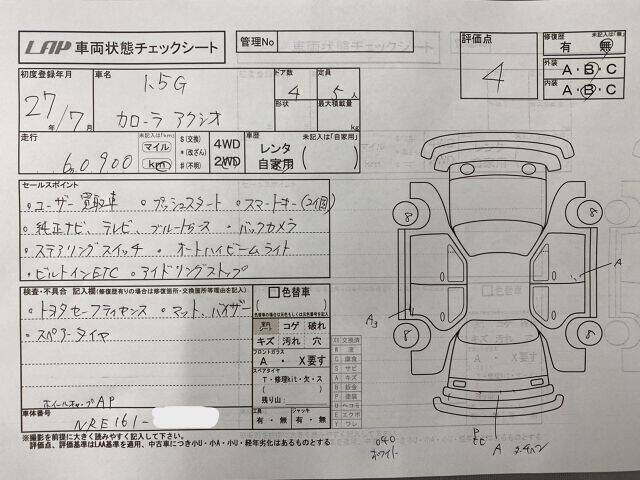 LAP 車両状態チェックシート
管理No
評価点
4
修復歴
未記入は「無」
有 ・ 無
外装
A・B・C
内装
A・B・C
初度登録年月
27年/7月
車名
1.5G
カローラ アクシオ
ドア数
4
定員
5人
形状
最大積載量
kg
走行
60,900
未記入は「km」
マイル
km
$(交換)
*(改ざん)
#(不明)
4WD
2WD
車歴
未記入は「自家用」
レンタ
自家用
セールスポイント
・ユーザー買取車 ・プッシュスタート ・スマートキー(2個)
・純正ナビ、テレビ、ブルートゥース ・バックカメラ
・ステアリングスイッチ ・オートハイビームライト
・ビルトインETC ・アイドリングストップ
検査・不具合 記入欄(修復歴有りの場合は修復箇所・交換箇所等理由を記入)
・トヨタセーフティセンス ・マット、バイザー
・スペアータイヤ
ホイールキャップAP
□色替車
コゲ 破れ
キズ 汚れ 穴
フロントガラス
A ・ X要す
スペアタイヤ
T・修理kit・欠・ス
残り山:
工具
有・無
ジャッキ
有・無
車体番号
NRE161-
※撮影を前提に大きく読みやすく記入して下さい。
評価点、評価基準はLAA基準を適用、中古車につき小U・小A・小U・経年劣化はあるものとする
XX 交換済
W 波
C 腐食
S サビ
A キズ
B 鈑金
P 塗装
U ヘコミ
E エクボ
Y ワレ
8
8
8
8
A
A3
A
040
ホワイト